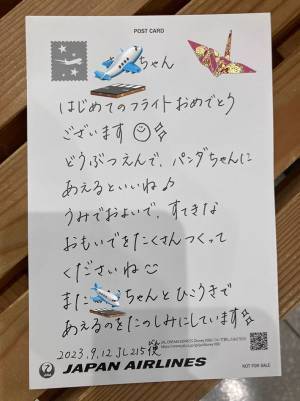 POST CARD
ちゃん
はじめてのフライトおめでとう
ございます
どうぶつえんで、パンダちゃんに
あえるといいね♪
うみでおよいで、すてきな
おもいでをたくさんつくって
くださいね
また ちゃんとひこうきで
あえるのをたのしみにしています
2023.9.12 JL215便
JAPAN AIRLINES
NOT FOR SALE